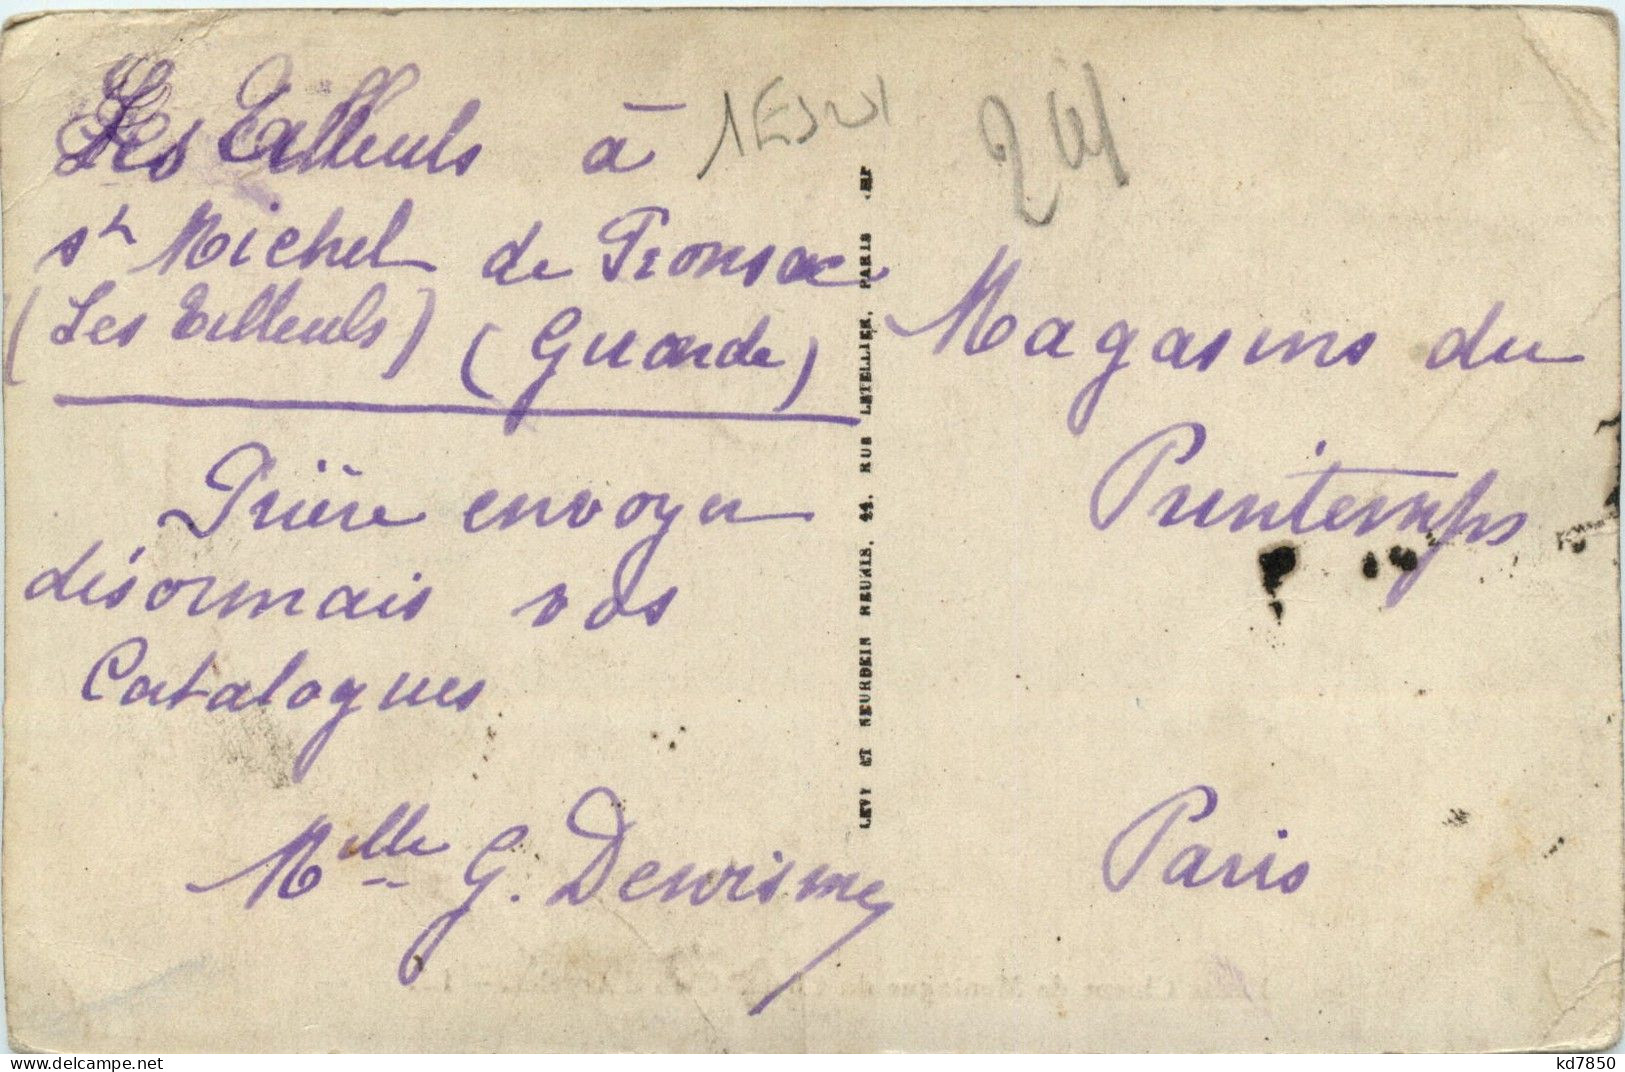 Les Tilleuls à
St Michel de Fronsac
(Les Tilleuls) (Gironde)
Prière envoyer
désormais vos
Catalogues
Mlle G. Denrisme
LEVY ET NEURDEIN REUNIS, 44, RUE LETELLIER, PARIS - IMP
Magasins du
Printemps
Paris
kd7850